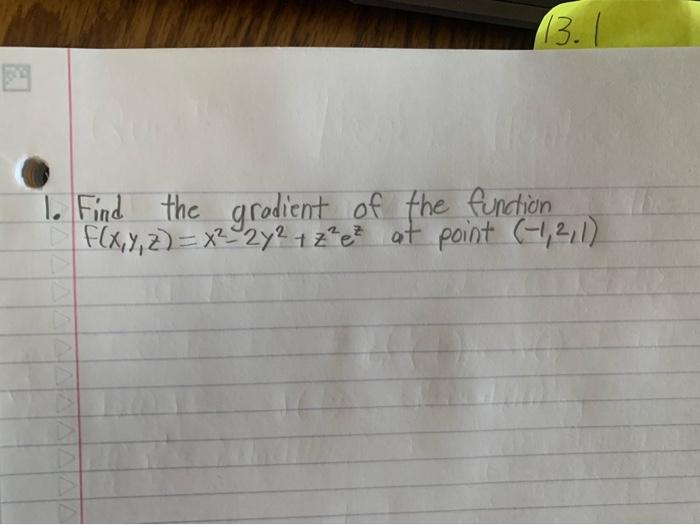 13.1
1. Find the gradient of the function
F(x,y,z) = x²-2y² + z²e^z at point (-1,2,1)